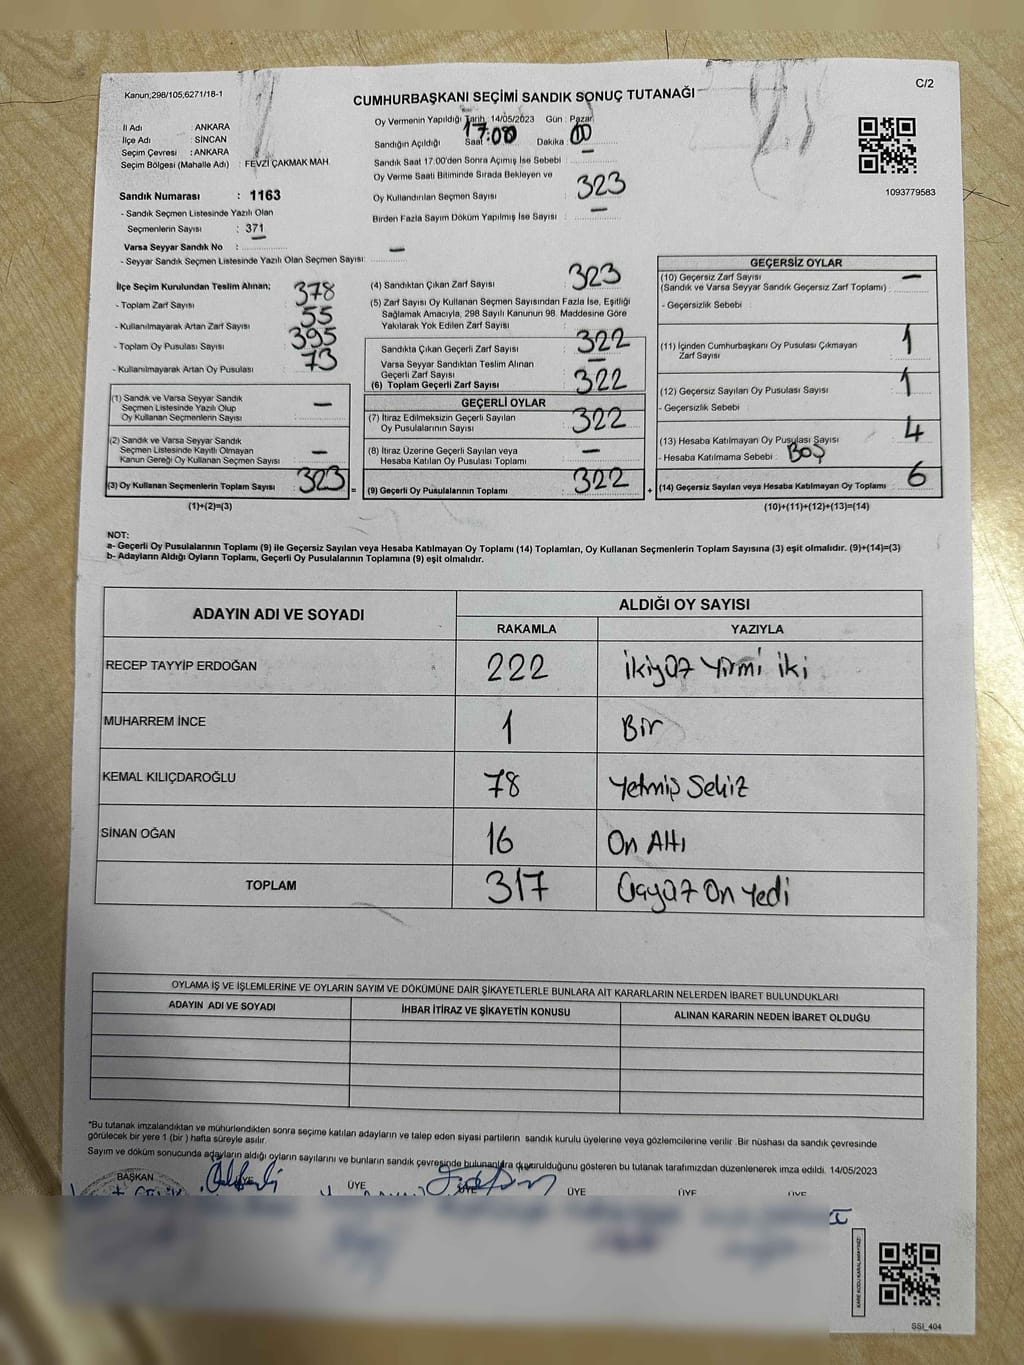 Kanun;298/105,6271/18-1
C/2
CUMHURBAŞKANI SEÇİMİ SANDIK SONUÇ TUTANAĞI
İl Adı : ANKARA
İlçe Adı : SİNCAN
Seçim Çevresi : ANKARA
Seçim Bölgesi (Mahalle Adı) : FEVZİ ÇAKMAK MAH.
Oy Vermenin Yapıldığı Tarih: 14/05/2023 Gün : Pazar
Sandığın Açıldığı Saat : 17:00 Dakika : 00
Sandık Saat 17:00'den Sonra Açımış İse Sebebi : —
Oy Verme Saati Bitiminde Sırada Bekleyen ve
Oy Kullandırılan Seçmen Sayısı : 323
Birden Fazla Sayım Döküm Yapılmış İse Sayısı : —
1093779583
Sandık Numarası : 1163
- Sandık Seçmen Listesinde Yazılı Olan
Seçmenlerin Sayısı : 371
Varsa Seyyar Sandık No : —
- Seyyar Sandık Seçmen Listesinde Yazılı Olan Seçmen Sayısı: —
İlçe Seçim Kurulundan Teslim Alınan;
- Toplam Zarf Sayısı : 378
- Kullanılmayarak Artan Zarf Sayısı : 55
- Toplam Oy Pusulası Sayısı : 395
- Kullanılmayarak Artan Oy Pusulası : 73
(1) Sandık ve Varsa Seyyar Sandık
Seçmen Listesinde Yazılı Olup
Oy Kullanan Seçmenlerin Sayısı : —
(2) Sandık ve Varsa Seyyar Sandık
Seçmen Listesinde Kayıtlı Olmayan
Kanun Gereği Oy Kullanan Seçmen Sayısı : —
(3) Oy Kullanan Seçmenlerin Toplam Sayısı : 323 =
(1)+(2)=(3)
(4) Sandıktan Çıkan Zarf Sayısı : 323
(5) Zarf Sayısı Oy Kullanan Seçmen Sayısından Fazla İse, Eşitliği
Sağlamak Amacıyla, 298 Sayılı Kanunun 98. Maddesine Göre
Yakılarak Yok Edilen Zarf Sayısı :
Sandıkta Çıkan Geçerli Zarf Sayısı : 322
Varsa Seyyar Sandıktan Teslim Alınan
Geçerli Zarf Sayısı : —
(6) Toplam Geçerli Zarf Sayısı : 322
GEÇERLİ OYLAR
(7) İtiraz Edilmeksizin Geçerli Sayılan
Oy Pusulalarının Sayısı : 322
(8) İtiraz Üzerine Geçerli Sayılan veya
Hesaba Katılan Oy Pusulası Toplamı : —
(9) Geçerli Oy Pusulalarının Toplamı : 322 +
GEÇERSİZ OYLAR
(10) Geçersiz Zarf Sayısı
(Sandık ve Varsa Seyyar Sandık Geçersiz Zarf Toplamı) : —
- Geçersizlik Sebebi :
(11) İçinden Cumhurbaşkanı Oy Pusulası Çıkmayan
Zarf Sayısı : 1
(12) Geçersiz Sayılan Oy Pusulası Sayısı : 1
- Geçersizlik Sebebi :
(13) Hesaba Katılmayan Oy Pusulası Sayısı : 4
- Hesaba Katılmama Sebebi : BOŞ
(14) Geçersiz Sayılan veya Hesaba Katılmayan Oy Toplamı : 6
(10)+(11)+(12)+(13)=(14)
NOT:
a- Geçerli Oy Pusulalarının Toplamı (9) ile Geçersiz Sayılan veya Hesaba Katılmayan Oy Toplamı (14) Toplamları, Oy Kullanan Seçmenlerin Toplam Sayısına (3) eşit olmalıdır. (9)+(14)=(3)
b- Adayların Aldığı Oyların Toplamı, Geçerli Oy Pusulalarının Toplamına (9) eşit olmalıdır.
ADAYIN ADI VE SOYADI
ALDIĞI OY SAYISI
RAKAMLA YAZIYLA
RECEP TAYYİP ERDOĞAN 222 İkiyüz Yirmi iki
MUHARREM İNCE 1 Bir
KEMAL KILIÇDAROĞLU 78 Yetmiş Sekiz
SİNAN OĞAN 16 On Altı
TOPLAM 317 Üçyüz On Yedi
OYLAMA İŞ VE İŞLEMLERİNE VE OYLARIN SAYIM VE DÖKÜMÜNE DAİR ŞİKAYETLERLE BUNLARA AİT KARARLARIN NELERDEN İBARET BULUNDUKLARI
ADAYIN ADI VE SOYADI İHBAR İTİRAZ VE ŞİKAYETİN KONUSU ALINAN KARARIN NEDEN İBARET OLDUĞU
*Bu tutanak imzalandıktan ve mühürlendikten sonra seçime katılan adayların ve talep eden siyasi partilerin sandık kurulu üyelerine veya gözlemcilerine verilir. Bir nüshası da sandık çevresinde
görülecek bir yere 1 (bir ) hafta süreyle asılır.
Sayım ve döküm sonucunda adayların aldığı oyların sayılarını ve bunların sandık çevresinde bulunanlara duyurulduğunu gösteren bu tutanak tarafımızdan düzenlenerek imza edildi. 14/05/2023
BAŞKAN ÜYE ÜYE ÜYE ÜYE ÜYE ÜYE
KARE KODU KARALAMAYINIZ!
SSI_404